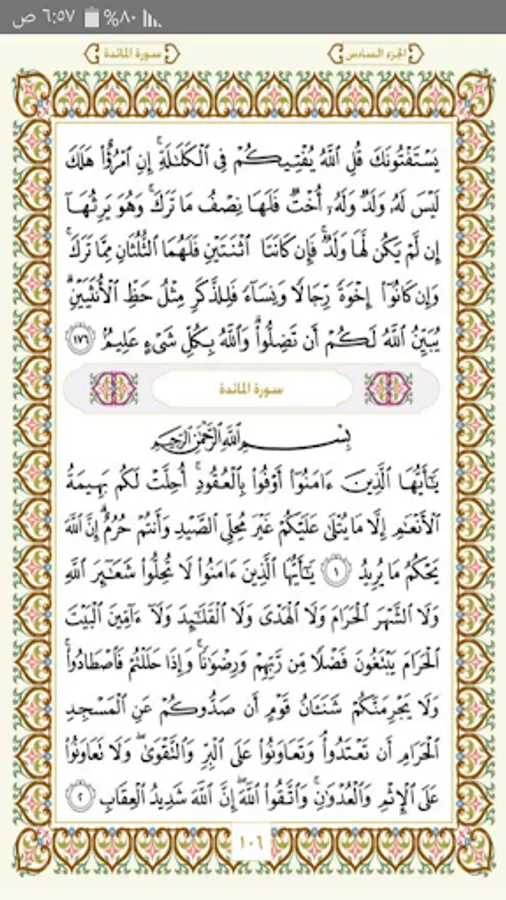 ٦:٥٧ ص ٨٠%
سورة المائدة الجزء السادس
يَسْتَفْتُونَكَ قُلِ ٱللَّهُ يُفْتِيكُمْ فِى ٱلْكَلَـٰلَةِ ۚ إِنِ ٱمْرُؤٌا۟ هَلَكَ
لَيْسَ لَهُۥ وَلَدٌ وَلَهُۥٓ أُخْتٌ فَلَهَا نِصْفُ مَا تَرَكَ ۚ وَهُوَ يَرِثُهَآ
إِن لَّمْ يَكُن لَّهَا وَلَدٌ ۚ فَإِن كَانَتَا ٱثْنَتَيْنِ فَلَهُمَا ٱلثُّلُثَانِ مِمَّا تَرَكَ ۚ
وَإِن كَانُوٓا۟ إِخْوَةً رِّجَالًا وَنِسَآءً فَلِلذَّكَرِ مِثْلُ حَظِّ ٱلْأُنثَيَيْنِ ۗ
يُبَيِّنُ ٱللَّهُ لَكُمْ أَن تَضِلُّوا۟ ۗ وَٱللَّهُ بِكُلِّ شَىْءٍ عَلِيمٌۢ ١٧٦
سورة المائدة
بِسْمِ ٱللَّهِ ٱلرَّحْمَـٰنِ ٱلرَّحِيمِ
يَـٰٓأَيُّهَا ٱلَّذِينَ ءَامَنُوٓا۟ أَوْفُوا۟ بِٱلْعُقُودِ ۚ أُحِلَّتْ لَكُم بَهِيمَةُ
ٱلْأَنْعَـٰمِ إِلَّا مَا يُتْلَىٰ عَلَيْكُمْ غَيْرَ مُحِلِّى ٱلصَّيْدِ وَأَنتُمْ حُرُمٌ ۗ إِنَّ ٱللَّهَ
يَحْكُمُ مَا يُرِيدُ ١ يَـٰٓأَيُّهَا ٱلَّذِينَ ءَامَنُوا۟ لَا تُحِلُّوا۟ شَعَـٰٓئِرَ ٱللَّهِ
وَلَا ٱلشَّهْرَ ٱلْحَرَامَ وَلَا ٱلْهَدْىَ وَلَا ٱلْقَلَـٰٓئِدَ وَلَآ ءَآمِّينَ ٱلْبَيْتَ
ٱلْحَرَامَ يَبْتَغُونَ فَضْلًا مِّن رَّبِّهِمْ وَرِضْوَٰنًا ۚ وَإِذَا حَلَلْتُمْ فَٱصْطَادُوا۟ ۚ
وَلَا يَجْرِمَنَّكُمْ شَنَـَٔانُ قَوْمٍ أَن صَدُّوكُمْ عَنِ ٱلْمَسْجِدِ
ٱلْحَرَامِ أَن تَعْتَدُوا۟ ۘ وَتَعَاوَنُوا۟ عَلَى ٱلْبِرِّ وَٱلتَّقْوَىٰ ۖ وَلَا تَعَاوَنُوا۟
عَلَى ٱلْإِثْمِ وَٱلْعُدْوَٰنِ ۚ وَٱتَّقُوا۟ ٱللَّهَ ۖ إِنَّ ٱللَّهَ شَدِيدُ ٱلْعِقَابِ ٢
١٠٦